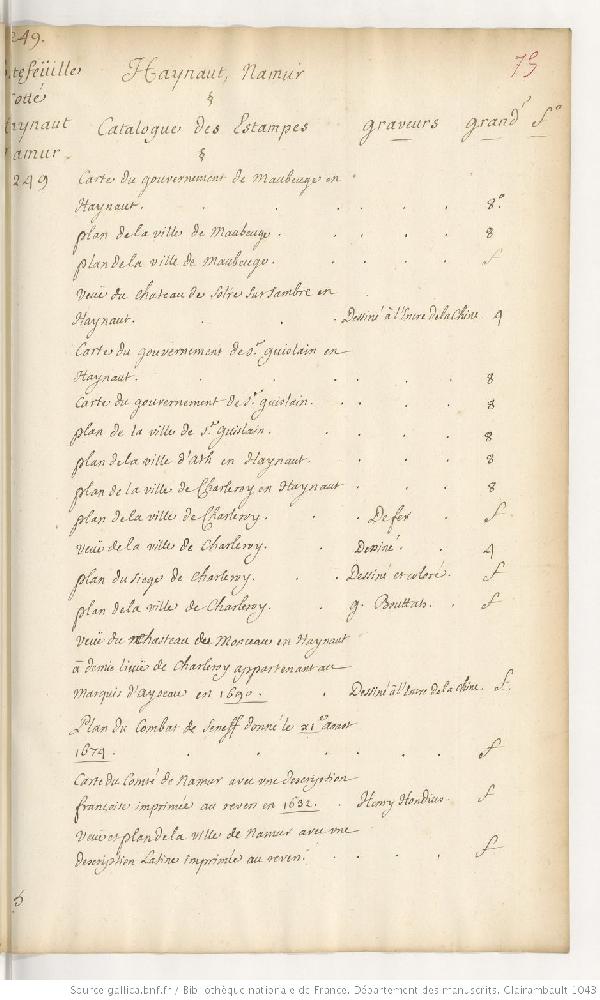 249.
75
Haynaut, Namur
&
Catalogue des Estampes graveurs grand.r f.o
&
Haynaut
249
Carte du gouvernement de Maubeuge en
Haynaut. 8.o
plan de la ville de Maubeuge. 8
plan de la ville de Maubeuge. f
Veüe du chateau de Solre sur Sambre en
Haynaut. Dessiné à l'Encre de la Chine 4
Carte du gouvernement de St. guislain en
Haynaut. 8
Carte du gouvernement de St. guislain. 8
plan de la ville de St. guislain. 8
plan de la ville d'Ath en Haynaut. 8
plan de la ville de Charleroy en Haynaut 8
plan de la ville de Charleroy. De fer f
Veüe de la ville de Charleroy. Dessiné. 4
plan du siege de Charleroy. Dessiné et coloré. f
plan de la ville de Charleroy. g. Bouttats. f
Veüe du Chasteau de Monceau en Haynaut
à demie lieüe de Charleroy appartenant au
Marquis d'Ayseau en 1690. Dessiné à l'Encre de la Chine. f.
Plan du Combat de Seneff donné le XI.e aoust
1674. f
Carte du Comté de Namur avec une description
françoise imprimée au revers en 1632. Henry Hondius f
Veüe et plan de la ville de Namur avec une
description Latine imprimée au revers. f
Source gallica.bnf.fr / Bibliothèque nationale de France. Département des manuscrits. Clairambault 1043